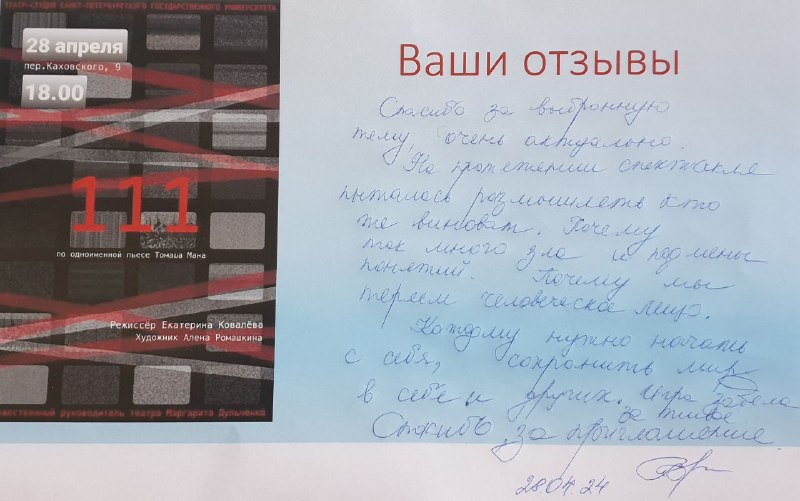 ТЕАТР-СТУДИЯ САНКТ-ПЕТЕРБУРГСКОГО ГОСУДАРСТВЕННОГО УНИВЕРСИТЕТА
28 апреля
пер.Каховского, 9
18.00
111
по одноименной пьесе Томаша Мана
Режиссёр Екатерина Ковалёва
Художник Алена Ромашкина
жественный руководитель театра Маргарита Дульченко
Ваши отзывы
Спасибо за выбранную
тему, очень актуально.
На протяжении спектакле
пыталась размышлять кто
же виноват. Почему
так много зла и подмены
понятий. Почему мы
теряем человеческое лицо.
Каждому нужно начать
с себя, сохранить мир
в себе и других. Игра задела
за живое
Спасибо за приглашение
28.04.24